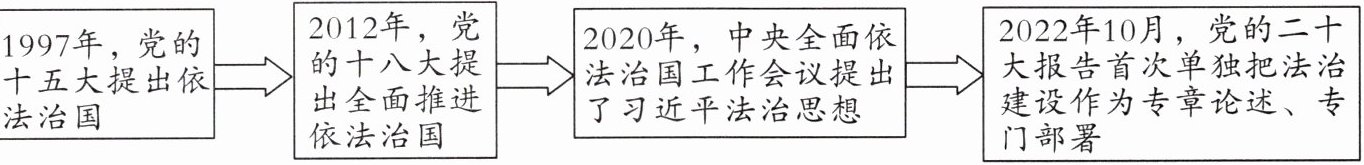 1997年，党的
十五大提出依
法治国
2012年，党
的十八大提
出全面推进
依法治国
2020年，中央全面依
法治国工作会议提出
了习近平法治思想
2022年10月，党的二十
大报告首次单独把法治
建设作为专章论述、专
门部署